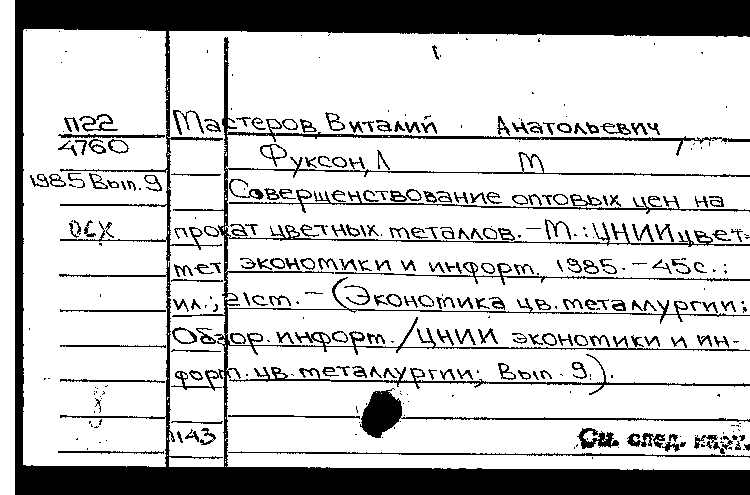 П22 Мастеров, Виталий Анатольевич
4760 Фуксон, Л М
1985 Вып. 9 Совершенствование оптовых цен на
ОСХ прокат цветных металлов. - М.: ЦНИИцвет-
мет экономики и информ., 1985. - 45с.:
ил.; 21см. - (Экономика цв. металлургии:
Обзор. информ. / ЦНИИ экономики и ин-
форм. цв. металлургии; Вып. 9.).
1143 См. след. карт.